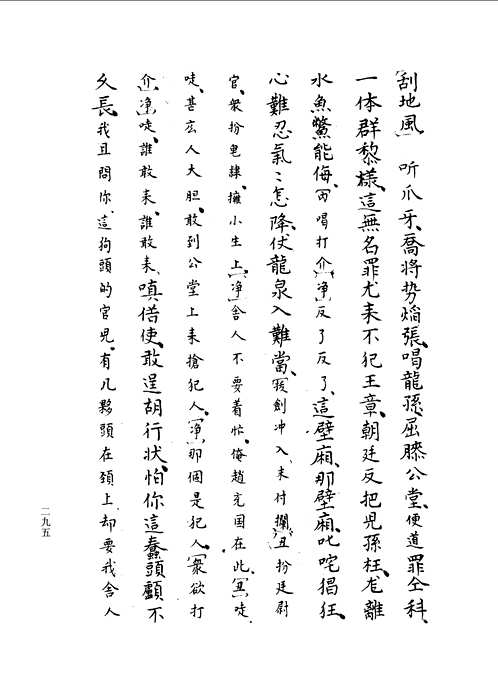 刮地風　听爪牙、喬將势熖張、喝龍孫屈膝公堂、便道罪仝科、
一体群黎樣、這無名罪尤来不犯王章、朝廷反把児孫枉、龙離
水魚鱉能侮、内喝打介净反了反了、這壁廂、那壁廂、叱咤猖狂、
心難忍氣〻怎降、伏龍泉入難當、拔劍冲入、末付攔丑扮廷尉
官、衆扮皂隸、擁小生上净舍人不要着忙、俺趙克国在此、丑唗、
唗、甚庅人大胆、敢到公堂上来搶犯人、净那個是犯人、衆欲打
介净唗、誰敢来、誰敢来、嗔偌使、敢逞胡行状、怕你這蠢頭顱不
久長、我且問你、這狗頭的官児、有几夥頭在頚上、却要我舍人
二九五